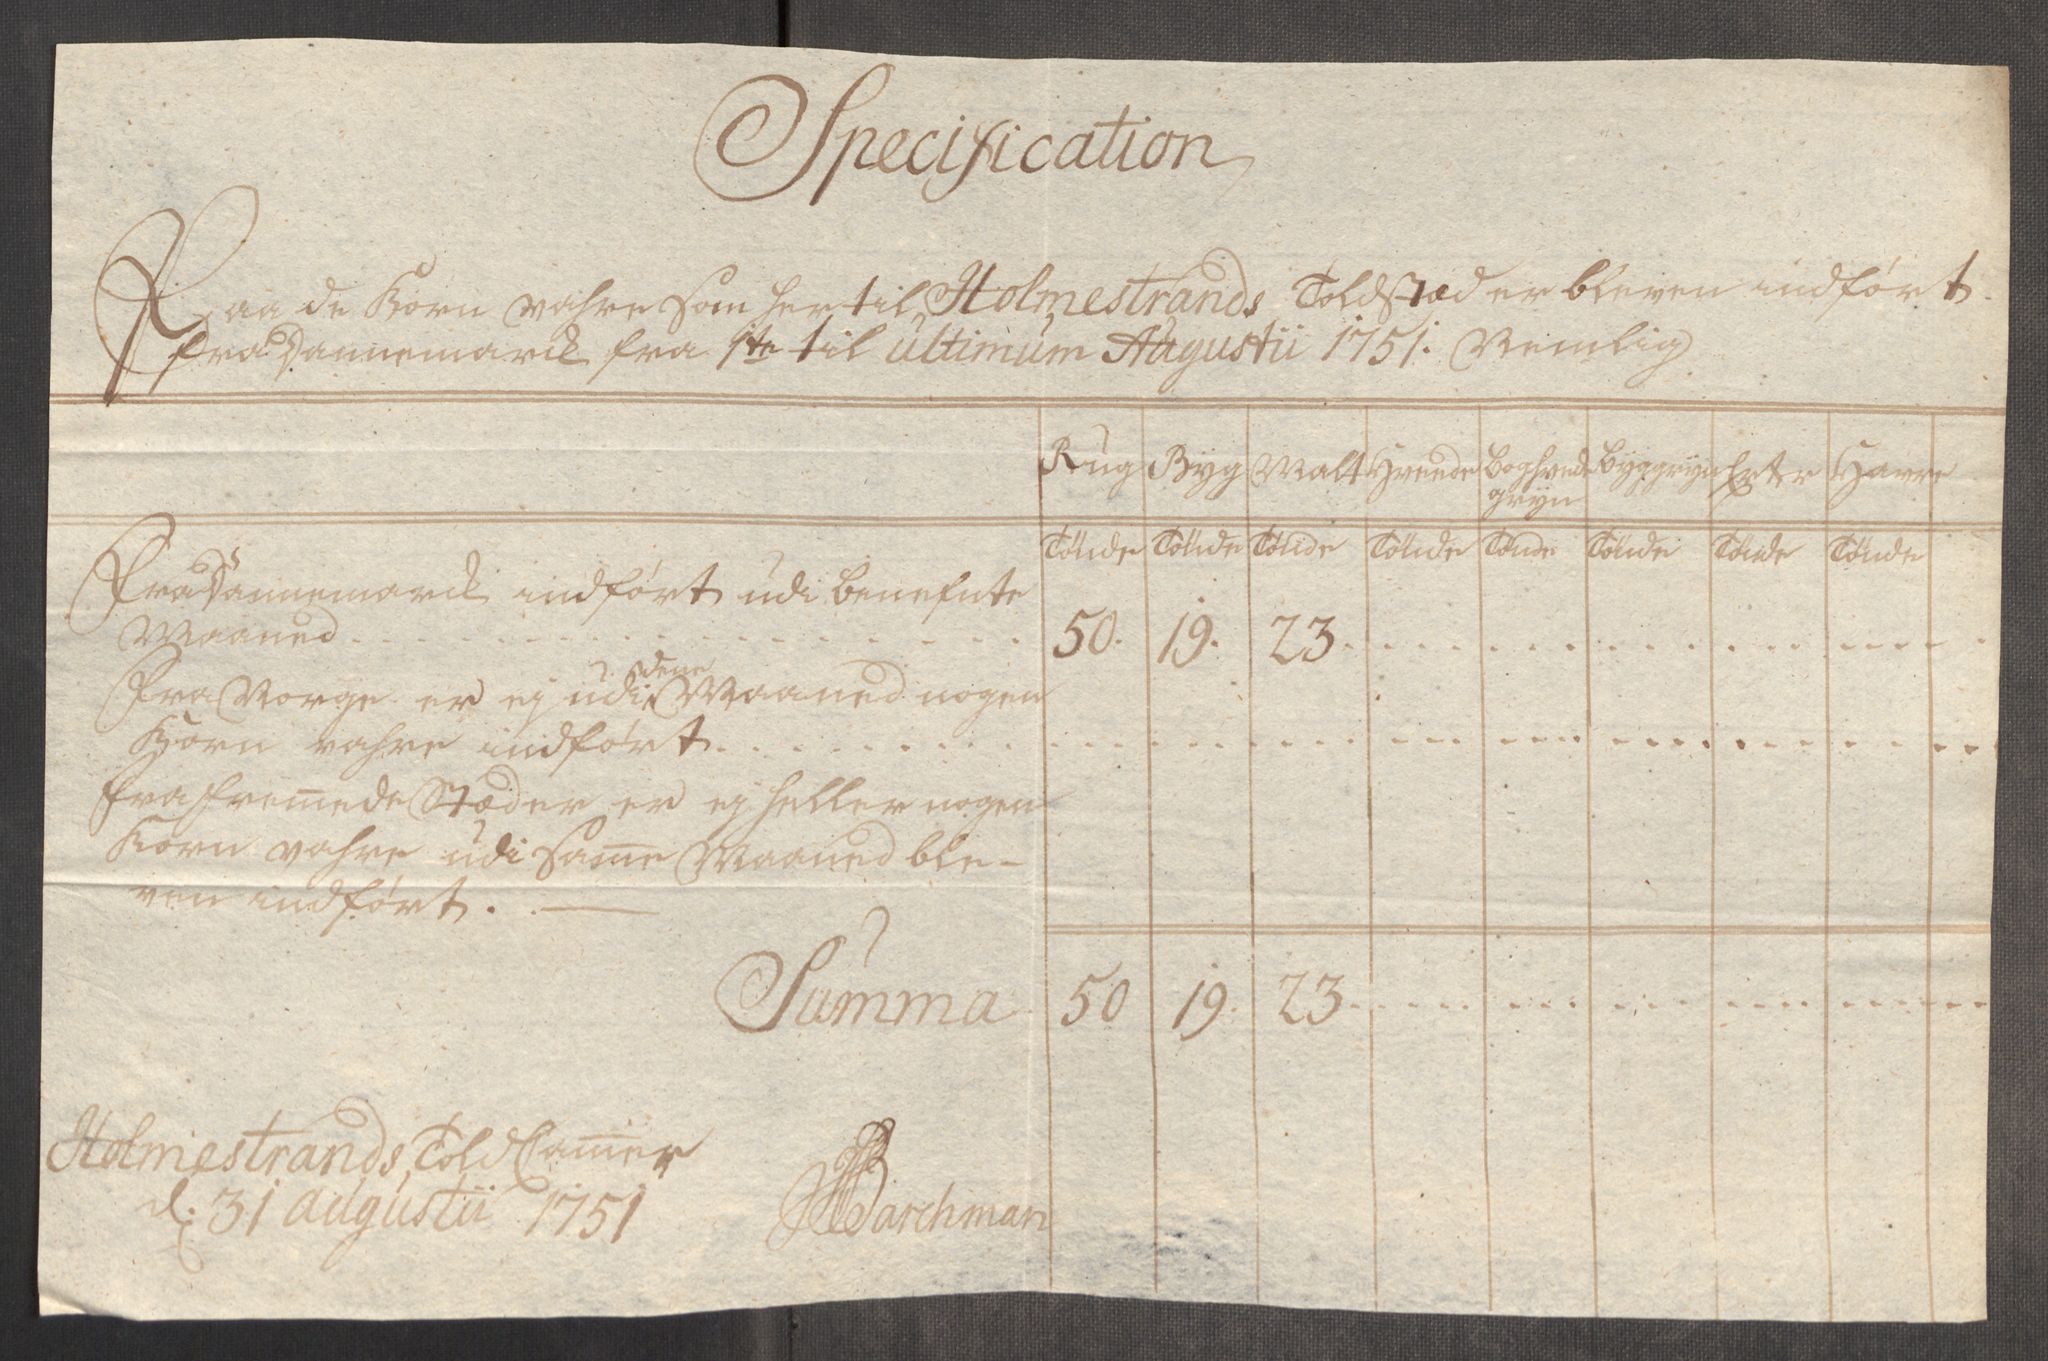 Specification
Paa de Korn vahre som her til Holmestrands Toldstæd er bleven indført
fra Dannemarck fra 1te til ultimum Augustii 1751. Nemlig
Rug Byg Malt Hvede Boghvede Byggryn Erter Havre
gryn
Tønde Tønde Tønde Tønde Tønde Tønde Tønde Tønde
Fra Dannemarck indført udi benefnte
Maaned 50. 19. 23
dene
Fra Norge er ej udi Maaned nogen
Korn vahre indført
fra fremede Stæder er ej heller nogen
Korn vahre udi Same Maaned ble-
ven indført.
Summa 50 19. 23
Holmestrands Told Camer
d. 31 augustii 1751 Barchman